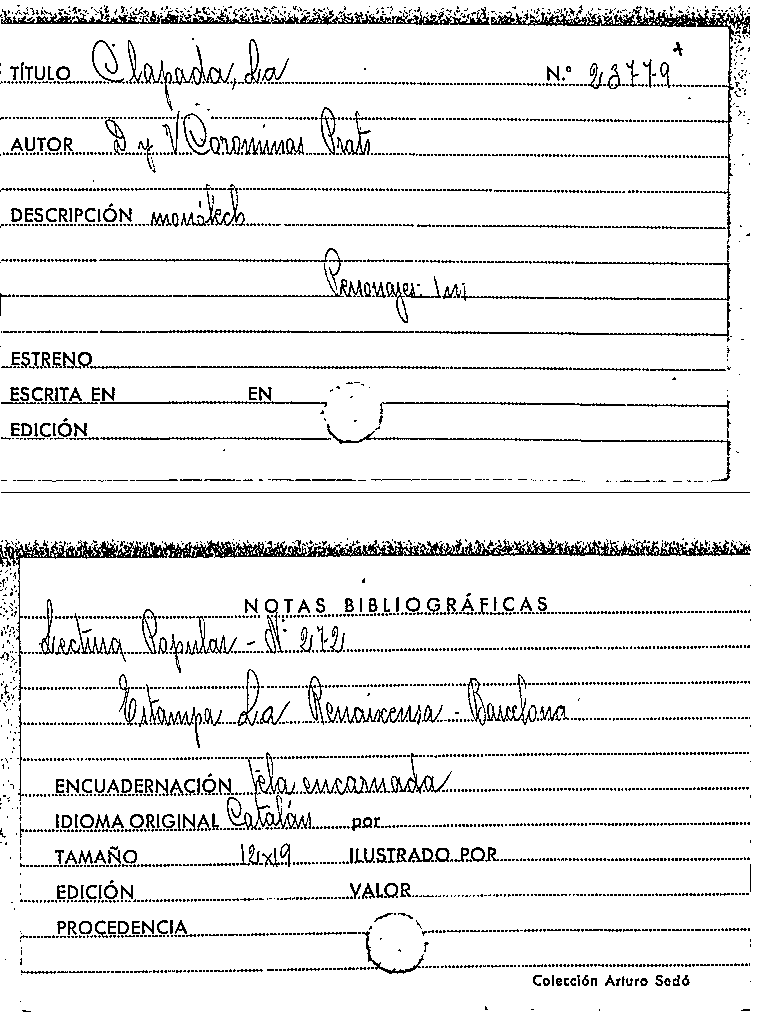 TÍTULO Clapada, La N.º 23779
AUTOR D y V Corominas Prats
DESCRIPCIÓN monólech
Personajes 1 m
ESTRENO
ESCRITA EN EN
EDICIÓN
NOTAS BIBLIOGRÁFICAS
Lectura Popular - Nº 272
Estampa La Renaixensa - Barcelona
ENCUADERNACIÓN tela encarnada
IDIOMA ORIGINAL Catalán por
TAMAÑO 12x19 ILUSTRADO POR
EDICIÓN VALOR
PROCEDENCIA
Colección Arturo Sedó